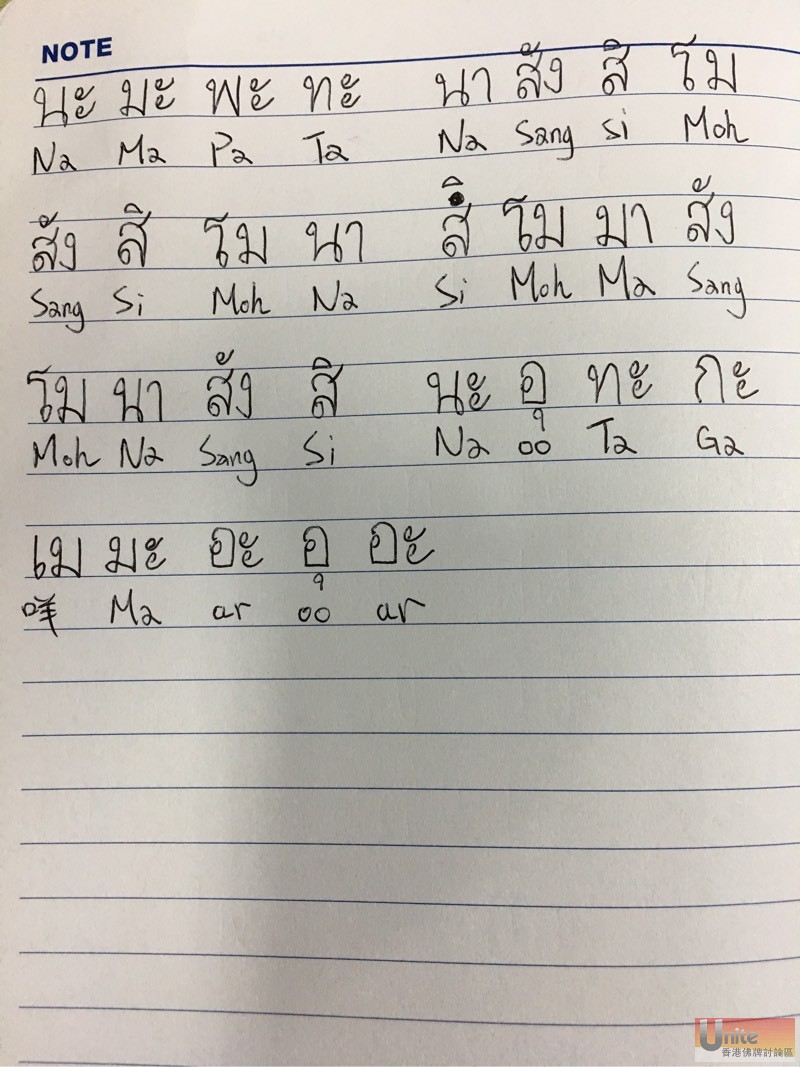 NOTE
นะ มะ พะ ทะ นา สัง สิ โม
Na Ma Pa Ta Na Sang Si Moh
สัง สิ โม นา สิ โม มา สัง
Sang Si Moh Na Si Moh Ma Sang
โม นา สัง สิ นะ อุ ทะ กะ
Moh Na Sang Si Na oo Ta Ga
เม มะ อะ อุ อะ
咩 Ma ar oo ar
Unite
香港佛牌討論區